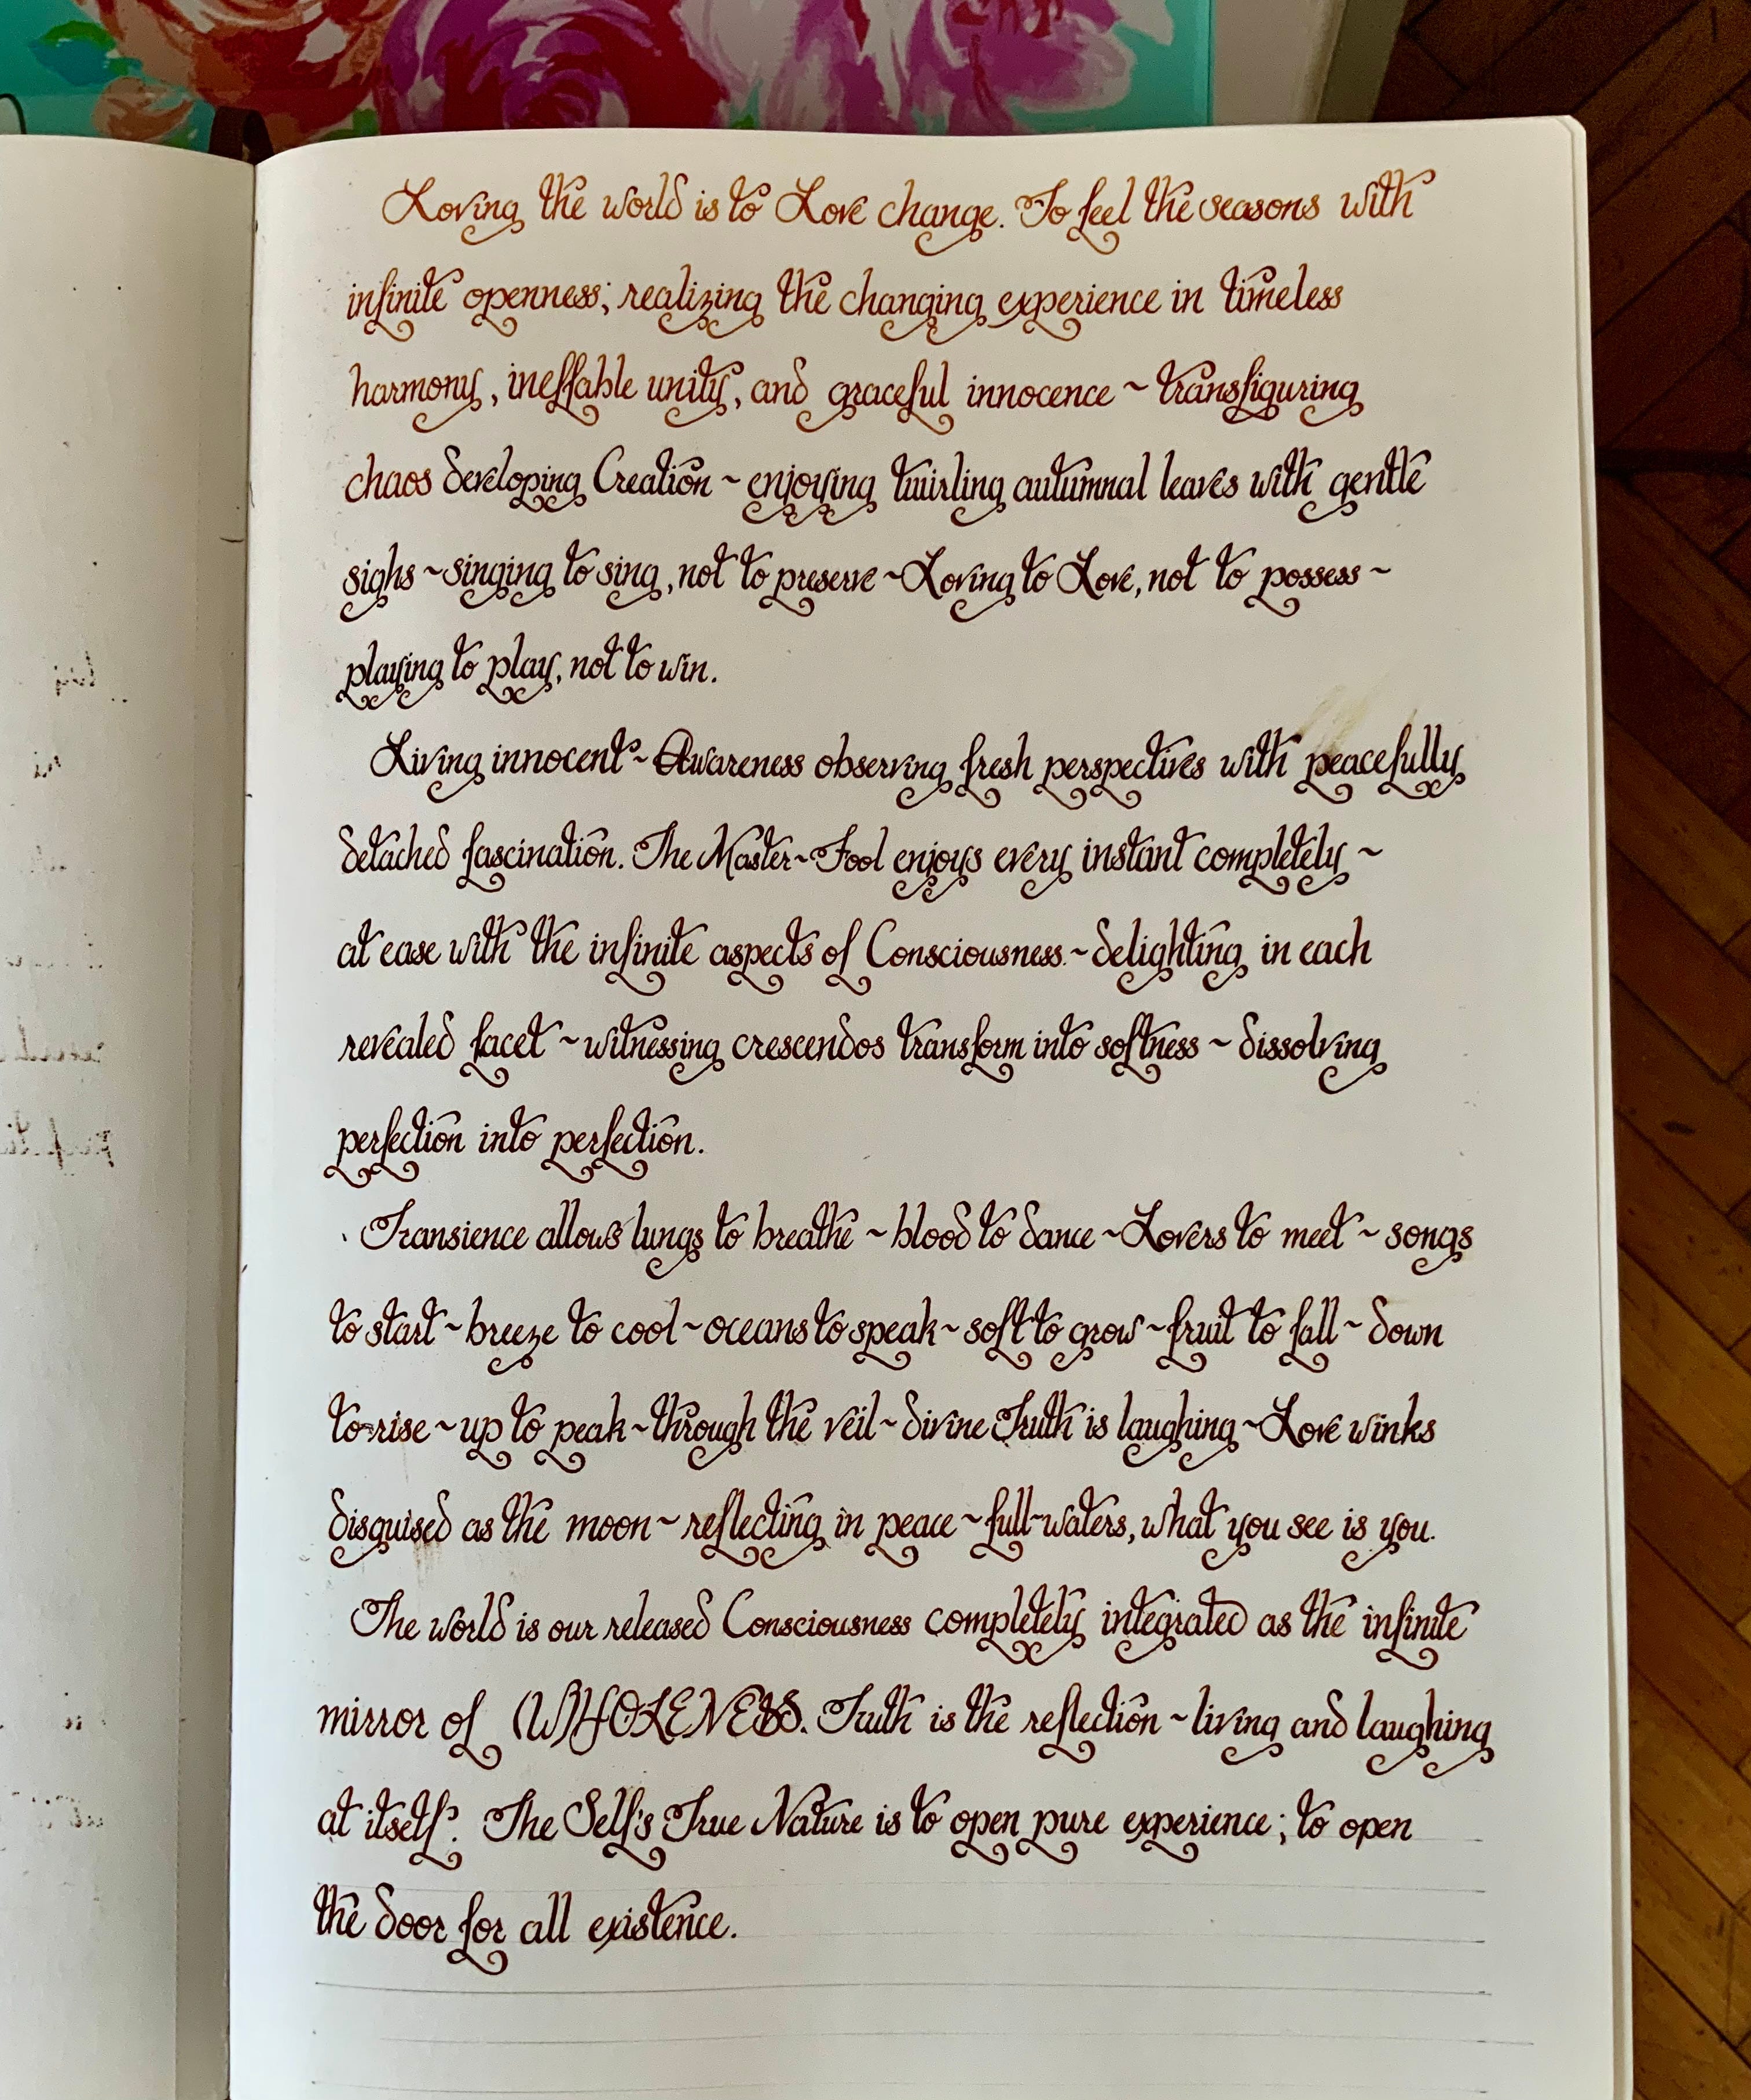 Loving the world is to Love change. To feel the seasons with
infinite openness; realizing the changing experience in timeless
harmony, ineffable unity, and graceful innocence ~ transfiguring
chaos developing Creation ~ enjoying twirling autumnal leaves with gentle
sighs ~ singing to sing, not to preserve ~ Loving to Love, not to possess ~
playing to play, not to win.
Living innocent ~ Awareness observing fresh perspectives with peacefully
detached fascination. The Master~Fool enjoys every instant completely ~
at ease with the infinite aspects of Consciousness ~ delighting in each
revealed facet ~ witnessing crescendos transform into softness ~ dissolving
perfection into perfection.
Transience allows lungs to breathe ~ blood to dance ~ Lovers to meet ~ songs
to start ~ breeze to cool ~ oceans to speak ~ soft to grow ~ fruit to fall ~ down
to rise ~ up to peak ~ through the veil ~ divine Truth is laughing ~ Love winks
disguised as the moon ~ reflecting in peace ~ full~waters, what you see is you.
The world is our released Consciousness completely integrated as the infinite
mirror of (W)HOLENESS. Truth is the reflection ~ living and laughing
at itself. The Self's True Nature is to open pure experience; to open
the door for all existence.